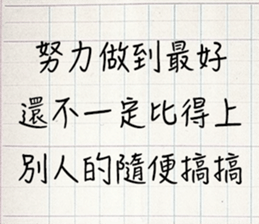 努力做到最好
還不一定比得上
別人的隨便搞搞